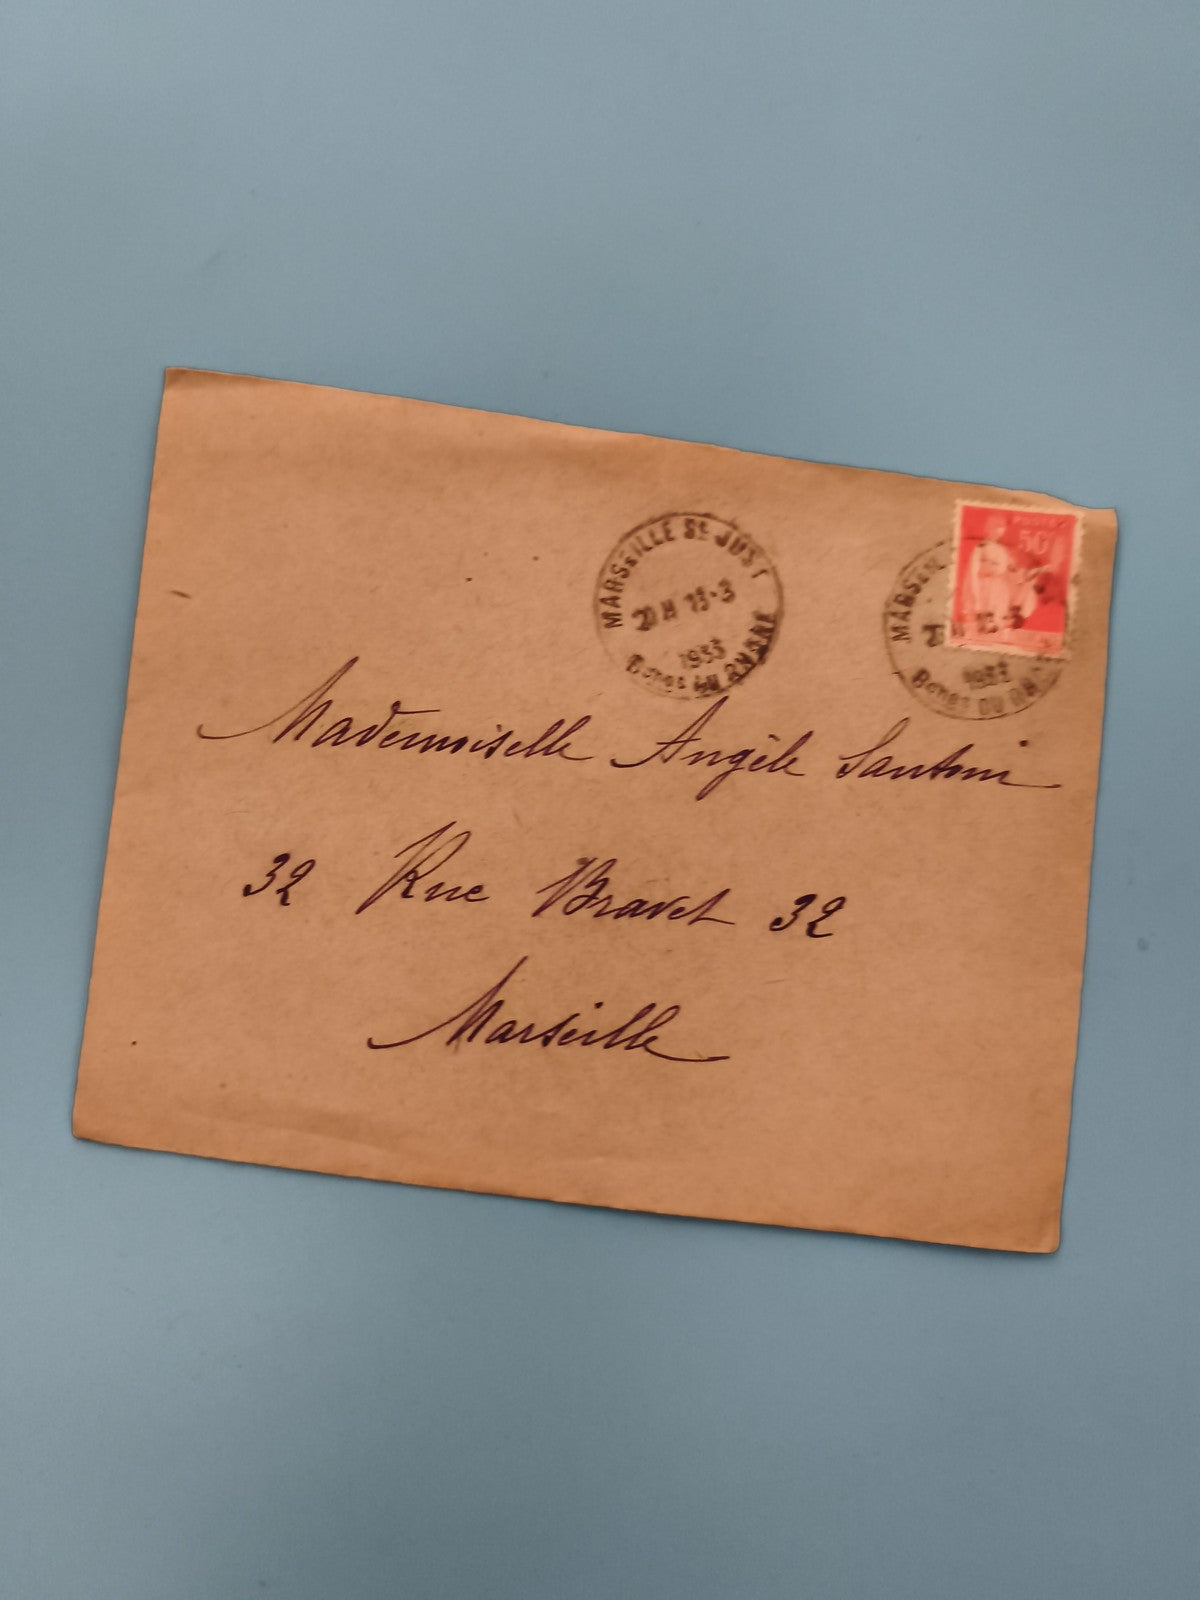 MARSEILLE St JUST
20 H 13-3
1933
Bches DU RHONE
POSTES
50
MARSEIL
H 13-3
1933
Bches DU RH
Mademoiselle Angèle Santoni
32 Rue Bravet 32
Marseille